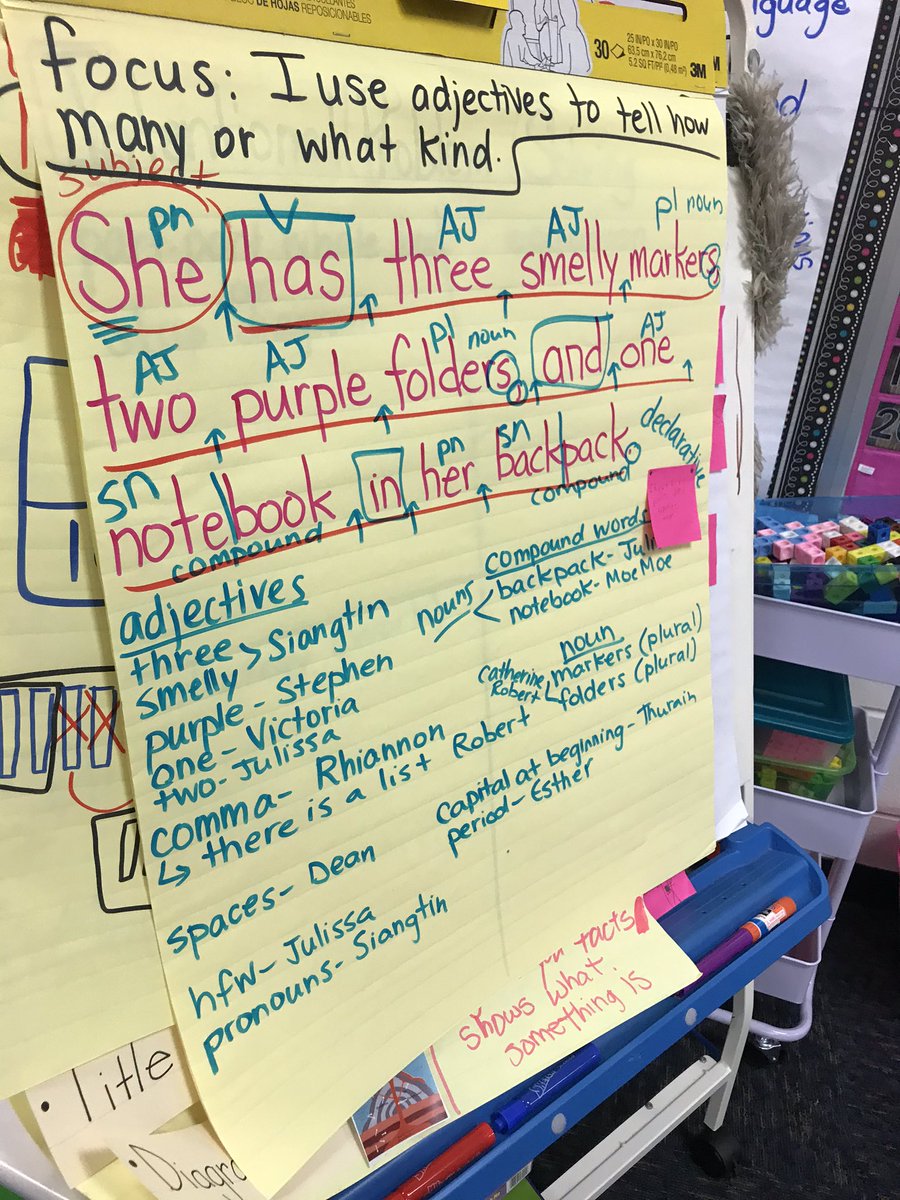 DE HOJAS REPOSICIONABLES
30
25 IN/PO x 30 IN/PO
63,5 cm x 76,2 cm
5.2 SQ FT/PP (0,48 m²)
3M
focus: I use adjectives to tell how
many or what kind.
subject
pn V AJ AJ pl noun
She has three smelly markers,
AJ AJ pl noun AJ
two purple folders, and one
sn pn sn declarative
notebook in her backpack.
compound compound
adjectives
three > Siangtin
smelly
purple - Stephen
one - Victoria
two - Julissa
comma - Rhiannon
↳ there is a list Robert
spaces - Dean
hfw - Julissa
pronouns - Siangtin
compound words
nouns < backpack -
notebook - MoeMoe
noun
Catherine markers (plural)
Robert folders (plural)
capital at beginning - Thurain
period - Esther
facts
shows what
something is
• Title
• Diagra